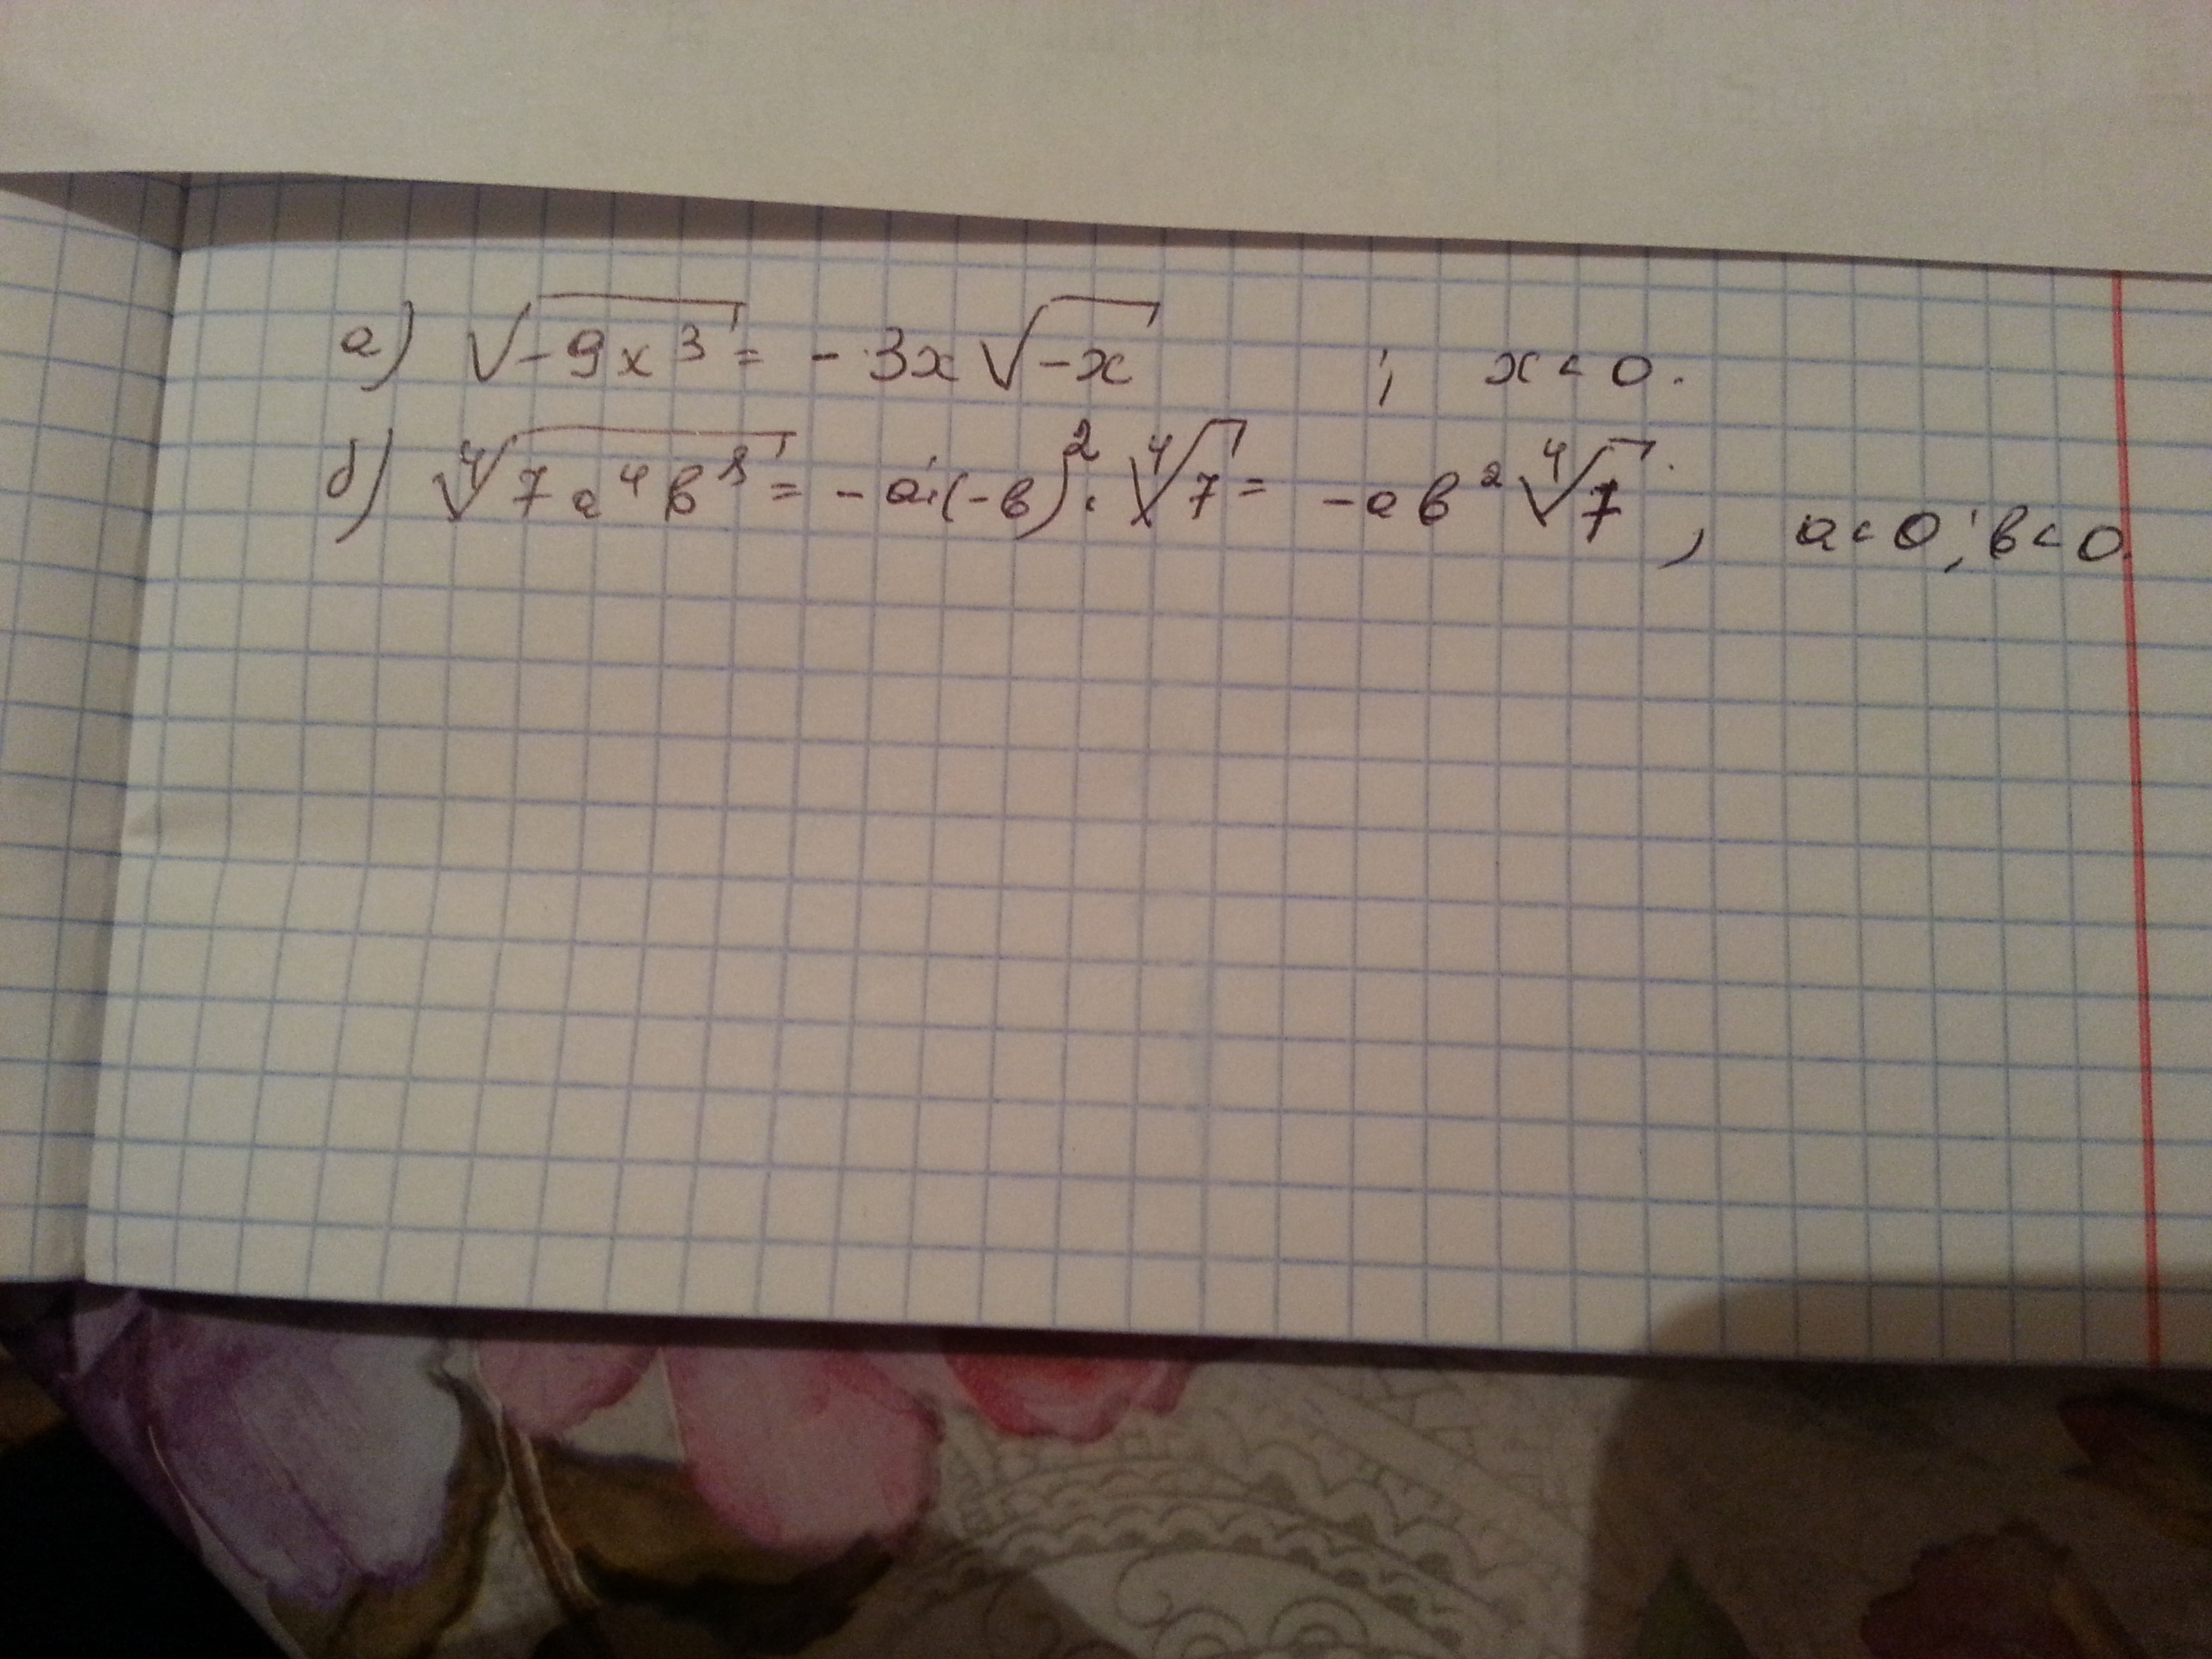 а) √-9x³ = -3x√-x ; x < 0.
б) ⁴√7a⁴b⁸ = -a·(-b)²·⁴√7 = -ab² ⁴√7, a < 0; b < 0.